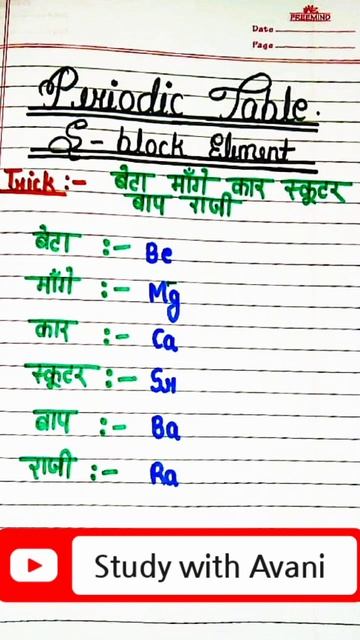 PREEMIND
Date
Page
Periodic Table.
S-block Element
Trick :- बेटा माँगे कार स्कूटर
बाप राजी
बेटा :- Be
माँगे :- Mg
कार :- Ca
स्कूटर :- Sr
बाप :- Ba
राजी :- Ra
Study with Avani